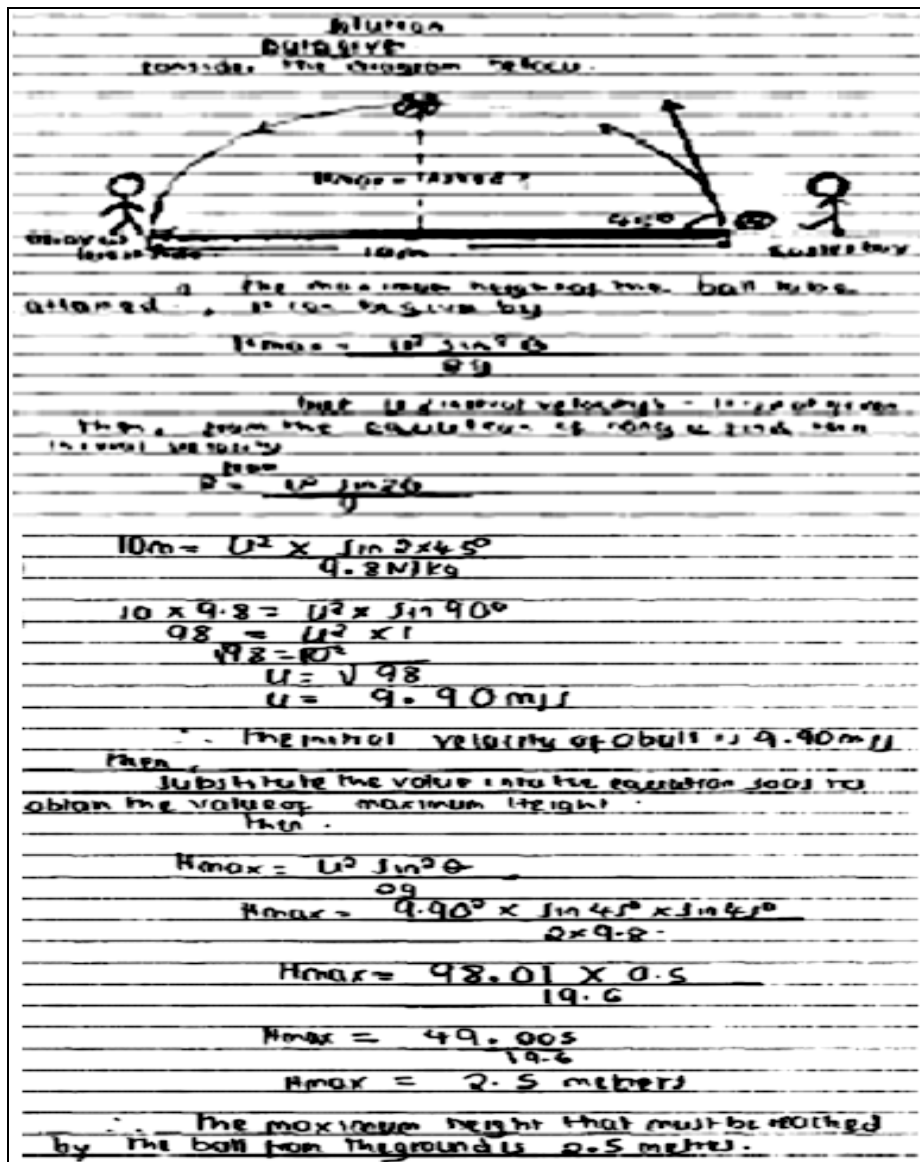 Solution
Data give
consider the diagram below.
Hmax = asked ?
45°
10m
the maximum height of the ball to be
attained, it can be given by
Hmax = U² sin² θ
2g
but U initial velocity = is not given
then, from the equation of range find the
initial velocity
from
R = U² sin2θ
g
10m = U² × sin 2×45°
9.8N/kg
10 × 9.8 = U² × sin 90°
98 = U² × 1
√98 = U²
U = √98
u = 9.90 m/s
∴ The initial velocity of a ball is 9.90 m/s
then,
substitute the value into the equation so as to
obtain the value of maximum Height.
then.
Hmax = U² sin² θ
2g
Hmax = 9.90² × sin 45° × sin 45°
2×9.8
Hmax = 98.01 × 0.5
19.6
Hmax = 49.005
19.6
Hmax = 2.5 meters
∴ The maximum height that must be reached
by the ball from the ground is 2.5 metres.